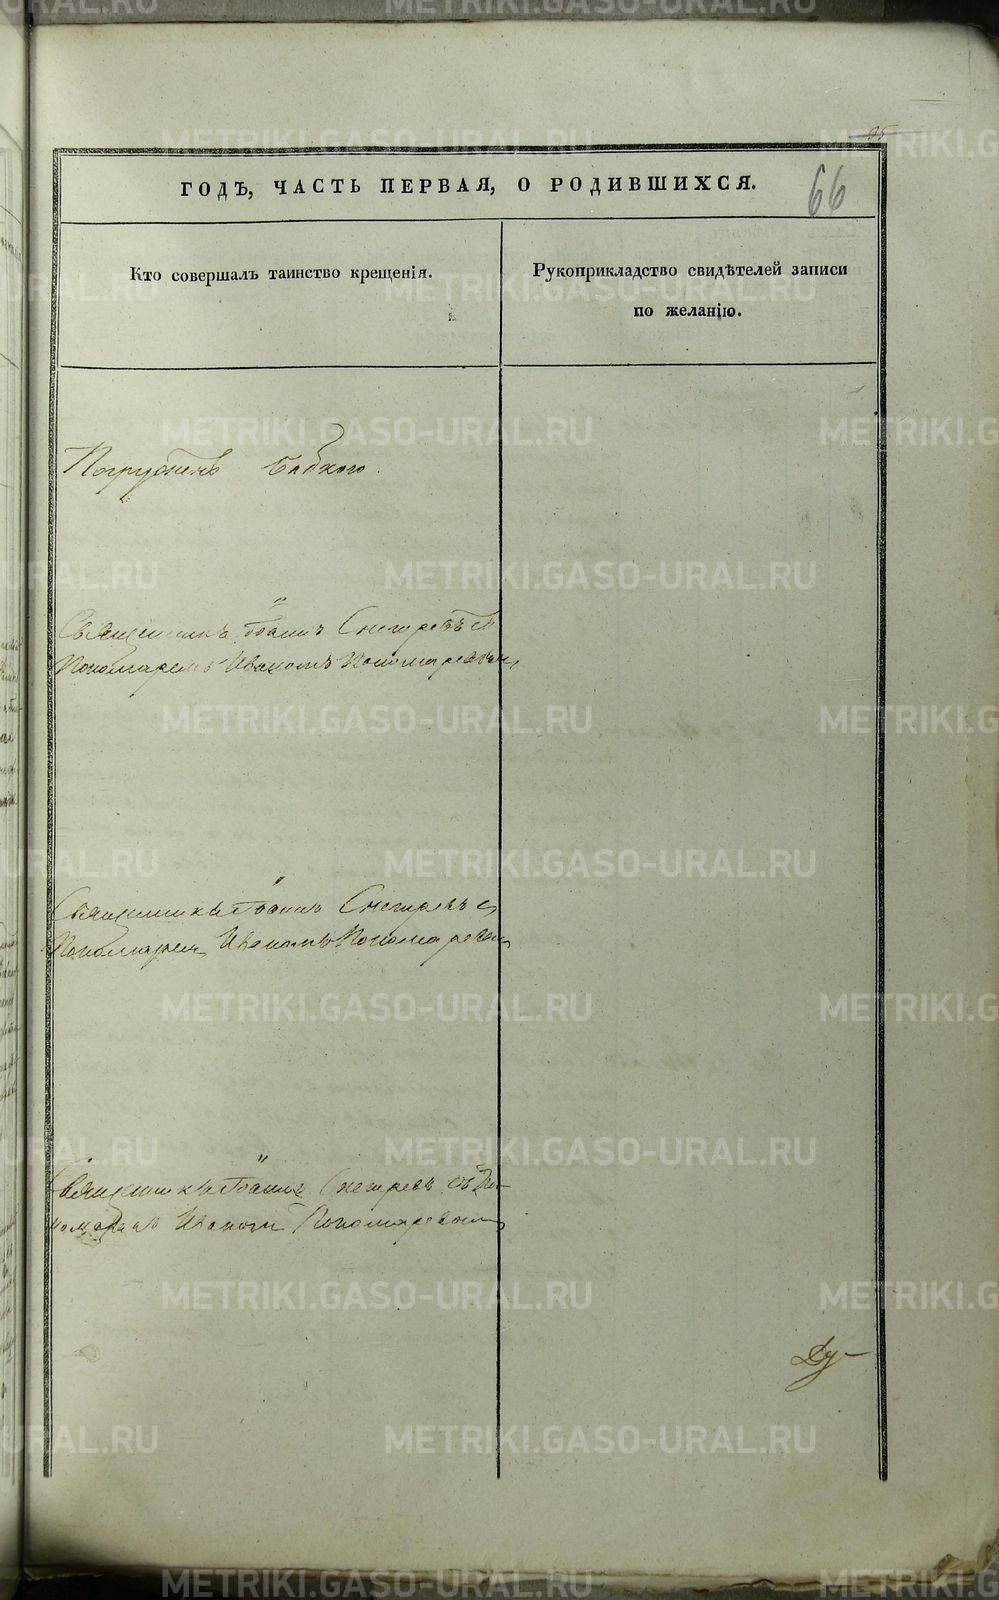 95
ГОДЪ, ЧАСТЬ ПЕРВАЯ, О РОДИВШИХСЯ.
66
Кто совершалъ таинство крещенія.
Рукоприкладство свидѣтелей записи
по желанію.
Погруженъ бабкою.
Священникъ Іоаннъ Снегиревъ съ
Пономаремъ Иваномъ Пономаревым
Священникъ Іоаннъ Снегиревъ съ
Пономарем Иваномъ Пономаревым
Священникъ Іоаннъ Снегиревъ съ По-
номаремъ Иваномъ Пономаревым
Ду-
METRIKI.GASO-URAL.RU